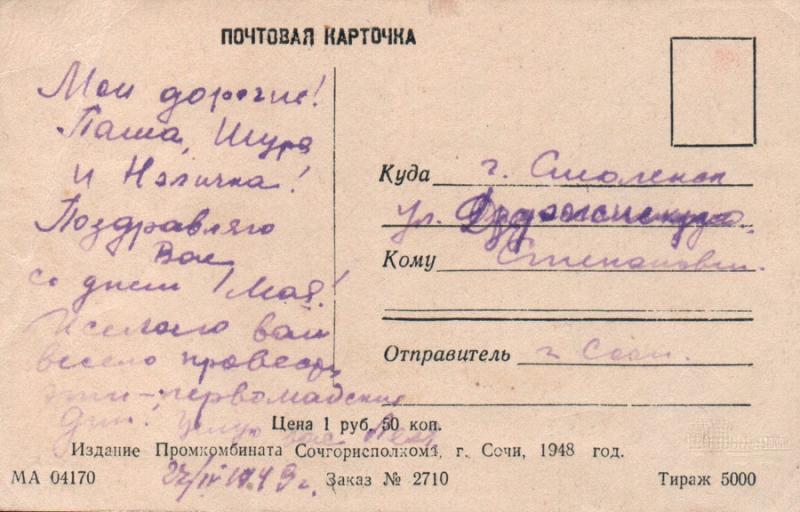 ПОЧТОВАЯ КАРТОЧКА
Мои дорогие!
Паша, Шура
и Нэличка!
Поздравляю
Вас
со днем 1 Мая!
Желаю вам
весело провести
эти - первомайские
дни! Целую вас
27/IV 1949 г.
Куда г. Смоленск
ул. Дзержинскую
Кому Степанович
Отправитель г. Сочи.
Цена 1 руб. 50 коп.
Издание Промкомбината Сочгорисполкома, г. Сочи, 1948 год.
МА 04170 Заказ № 2710 Тираж 5000